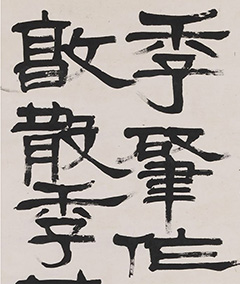 季肇作
敦散季